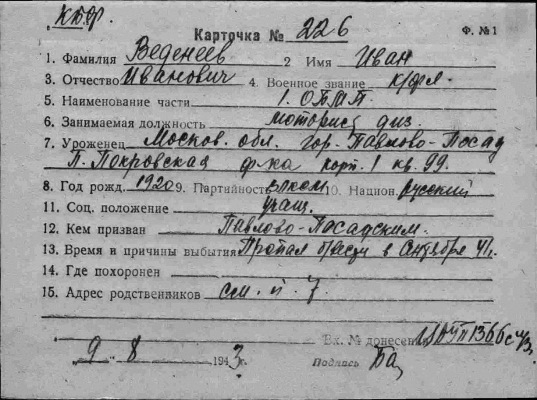 КБФ.
Карточка № 226 Ф. № 1
1. Фамилия Веденеев 2 Имя Иван
3. Отчество Иванович 4. Военное звание к/фл.
5. Наименование части 1. ОТМТ
6. Занимаемая должность моторист диз.
7. Уроженец Москов. обл. гор. Павлово-Посад
П. Покровская ф-ка корп. 1 кв. 99.
8. Год рожд. 1920 9. Партийность влксм 10. Национ. русский
11. Соц. положение учащ.
12. Кем призван Павлово-Посадским.
13. Время и причины выбытия Пропал б/вести в Сентябре 41 г.
14. Где похоронен
15. Адрес родственников см. п. 7
Вх. № донесен.
9 " 8 1943 г. Подпись